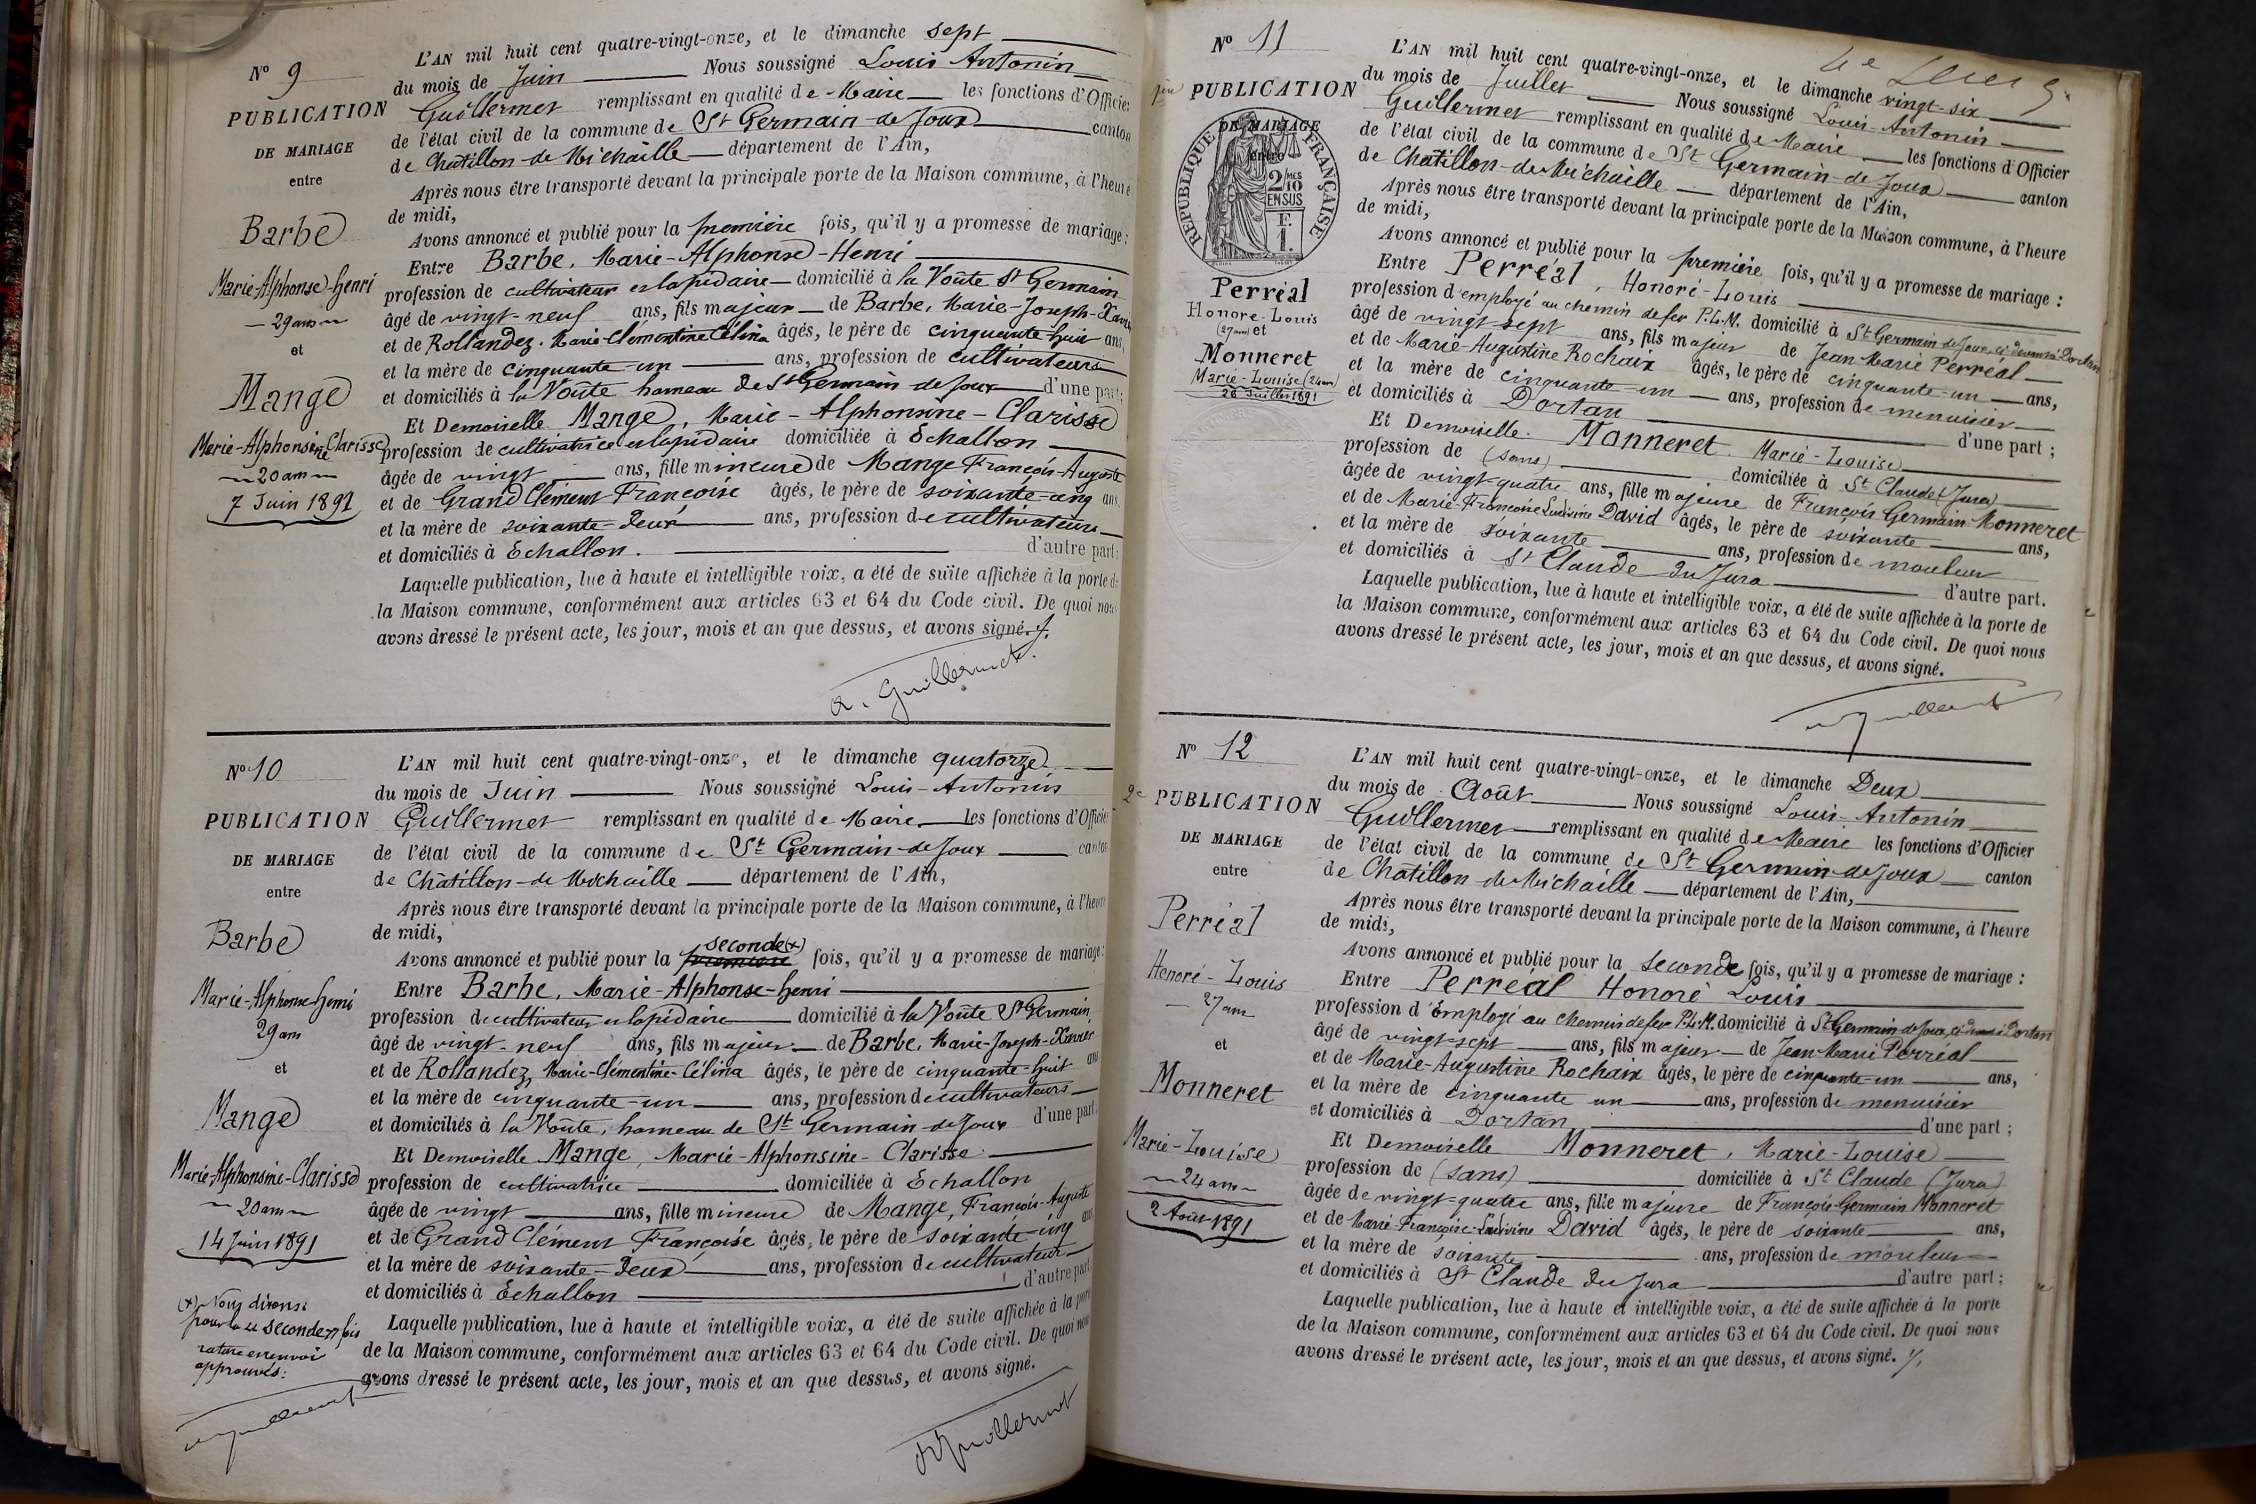 Nº 9
PUBLICATION
DE MARIAGE
entre
Barbe
Marie-Alphonse-Henri
29 ans
et
Mange
Marie-Alphonsine-Clarisse
20 ans
7 Juin 1891
L'AN mil huit cent quatre-vingt-onze, et le dimanche sept
du mois de Juin Nous soussigné Louis Antonin
Guillermet remplissant en qualité de Maire les fonctions d'Officier
de l'état civil de la commune de St Germain-de-Joux canton
de Châtillon-de-Michaille département de l'Ain,
Après nous être transporté devant la principale porte de la Maison commune, à l'heure
de midi,
Avons annoncé et publié pour la première fois, qu'il y a promesse de mariage :
Entre Barbe, Marie-Alphonse-Henri
profession de cultivateur et lapidaire domicilié à la Voûte St Germain
âgé de vingt-neuf ans, fils majeur de Barbe, Marie-Joseph-Xavier
et de Rollandez, Marie-Clémentine Célina âgés, le père de cinquante-huit ans,
et la mère de cinquante-un ans, profession de cultivateurs
et domiciliés à la Voûte hameau de St Germain de Joux d'une part;
Et Demoiselle Mange, Marie-Alphonsine-Clarisse
profession de cultivatrice et lapidaire domiciliée à Echallon
âgée de vingt ans, fille mineure de Mange François-Auguste
et de Grand Clément Françoise âgés, le père de soixante-cinq ans
et la mère de soixante-deux ans, profession de cultivateurs
et domiciliés à Echallon. d'autre part;
Laquelle publication, lue à haute et intelligible voix, a été de suite affichée à la porte de
la Maison commune, conformément aux articles 63 et 64 du Code civil. De quoi nous
avons dressé le présent acte, les jour, mois et an que dessus, et avons signé.
A. Guillermet
Nº 10
PUBLICATION
DE MARIAGE
entre
Barbe
Marie-Alphonse-Henri
29 ans
et
Mange
Marie-Alphonsine-Clarisse
20 ans
14 Juin 1891
(x) Nous disons:
pour la seconde fois
rature et renvoi
approuvés:
L'AN mil huit cent quatre-vingt-onze, et le dimanche quatorze
du mois de Juin Nous soussigné Louis-Antonin
Guillermet remplissant en qualité de Maire les fonctions d'Officier
de l'état civil de la commune de St Germain-de-Joux canton
de Châtillon-de-Michaille département de l'Ain,
Après nous être transporté devant la principale porte de la Maison commune, à l'heure
de midi,
seconde (x)
Avons annoncé et publié pour la première fois, qu'il y a promesse de mariage:
Entre Barbe, Marie-Alphonse-Henri
profession de cultivateur et lapidaire domicilié à la Voûte St Germain
âgé de vingt-neuf ans, fils majeur de Barbe, Marie-Joseph-Xavier
et de Rollandez, Marie-Clémentine-Célina âgés, le père de cinquante-huit ans
et la mère de cinquante-un ans, profession de cultivateurs
et domiciliés à la Voûte, hameau de St Germain-de-Joux d'une part.
Et Demoiselle Mange, Marie-Alphonsine-Clarisse
profession de cultivatrice domiciliée à Echallon
âgée de vingt ans, fille mineure de Mange, François-Auguste
et de Grand Clément Françoise âgés, le père de soixante-cinq ans
et la mère de soixante-deux ans, profession de cultivateur
et domiciliés à Echallon d'autre part.
Laquelle publication, lue à haute et intelligible voix, a été de suite affichée à la porte
de la Maison commune, conformément aux articles 63 et 64 du Code civil. De quoi nous
avons dressé le présent acte, les jour, mois et an que dessus, et avons signé.
A Guillermet
Nº 11
PUBLICATION
DE MARIAGE
entre
RÉPUBLIQUE FRANÇAISE
2/10 MES
EN SUS
F.
1.
Perréal
Honoré-Louis
(27 ans) et
Monneret
Marie-Louise (24 ans)
26 Juillet 1891
L'AN mil huit cent quatre-vingt-onze, et le dimanche vingt-six
du mois de Juillet Nous soussigné Louis-Antonin
Guillermet remplissant en qualité de Maire les fonctions d'Officier
de l'état civil de la commune de St Germain-de-Joux canton
de Châtillon-de-Michaille département de l'Ain,
Après nous être transporté devant la principale porte de la Maison commune, à l'heure
de midi,
Avons annoncé et publié pour la première fois, qu'il y a promesse de mariage :
Entre Perréal, Honoré-Louis
profession d'employé au chemin de fer P.L.M. domicilié à St Germain de Joux, ci-devant à Dortan
âgé de vingt-sept ans, fils majeur de Jean-Marie Perréal
et de Marie-Augustine Rochaix âgés, le père de cinquante-un ans,
et la mère de cinquante-un ans, profession de menuisier
et domiciliés à Dortan d'une part ;
Et Demoiselle Monneret, Marie-Louise
profession de (sans) domiciliée à St Claude (Jura)
âgée de vingt-quatre ans, fille majeure de François Germain Monneret
et de Marie-Françoise Ludivine David âgés, le père de soixante ans,
et la mère de soixante ans, profession de mouleur
et domiciliés à St Claude du Jura d'autre part.
Laquelle publication, lue à haute et intelligible voix, a été de suite affichée à la porte de
la Maison commune, conformément aux articles 63 et 64 du Code civil. De quoi nous
avons dressé le présent acte, les jour, mois et an que dessus, et avons signé.
Nº 12
2e PUBLICATION
DE MARIAGE
entre
Perréal
Honoré-Louis
27 ans
et
Monneret
Marie-Louise
24 ans
2 Août 1891
L'AN mil huit cent quatre-vingt-onze, et le dimanche Deux
du mois de Août Nous soussigné Louis-Antonin
Guillermet remplissant en qualité de Maire les fonctions d'Officier
de l'état civil de la commune de St Germain-de-Joux canton
de Châtillon-de-Michaille département de l'Ain,
Après nous être transporté devant la principale porte de la Maison commune, à l'heure
de midi,
Avons annoncé et publié pour la seconde fois, qu'il y a promesse de mariage :
Entre Perréal Honoré Louis
profession d'Employé au chemin de fer P.L.M. domicilié à St Germain-de-Joux, ci-devant à Dortan
âgé de vingt-sept ans, fils majeur de Jean-Marie Perréal
et de Marie-Augustine Rochaix âgés, le père de cinquante-un ans,
et la mère de cinquante un ans, profession de menuisier
et domiciliés à Dortan d'une part ;
Et Demoiselle Monneret, Marie-Louise
profession de (sans) domiciliée à St Claude (Jura)
âgée de vingt-quatre ans, fille majeure de François-Germain Monneret
et de Marie-Françoise-Ludivine David âgés, le père de soixante ans,
et la mère de soixante ans, profession de mouleur
et domiciliés à St Claude du Jura d'autre part ;
Laquelle publication, lue à haute et intelligible voix, a été de suite affichée à la porte
de la Maison commune, conformément aux articles 63 et 64 du Code civil. De quoi nous
avons dressé le présent acte, les jour, mois et an que dessus, et avons signé.